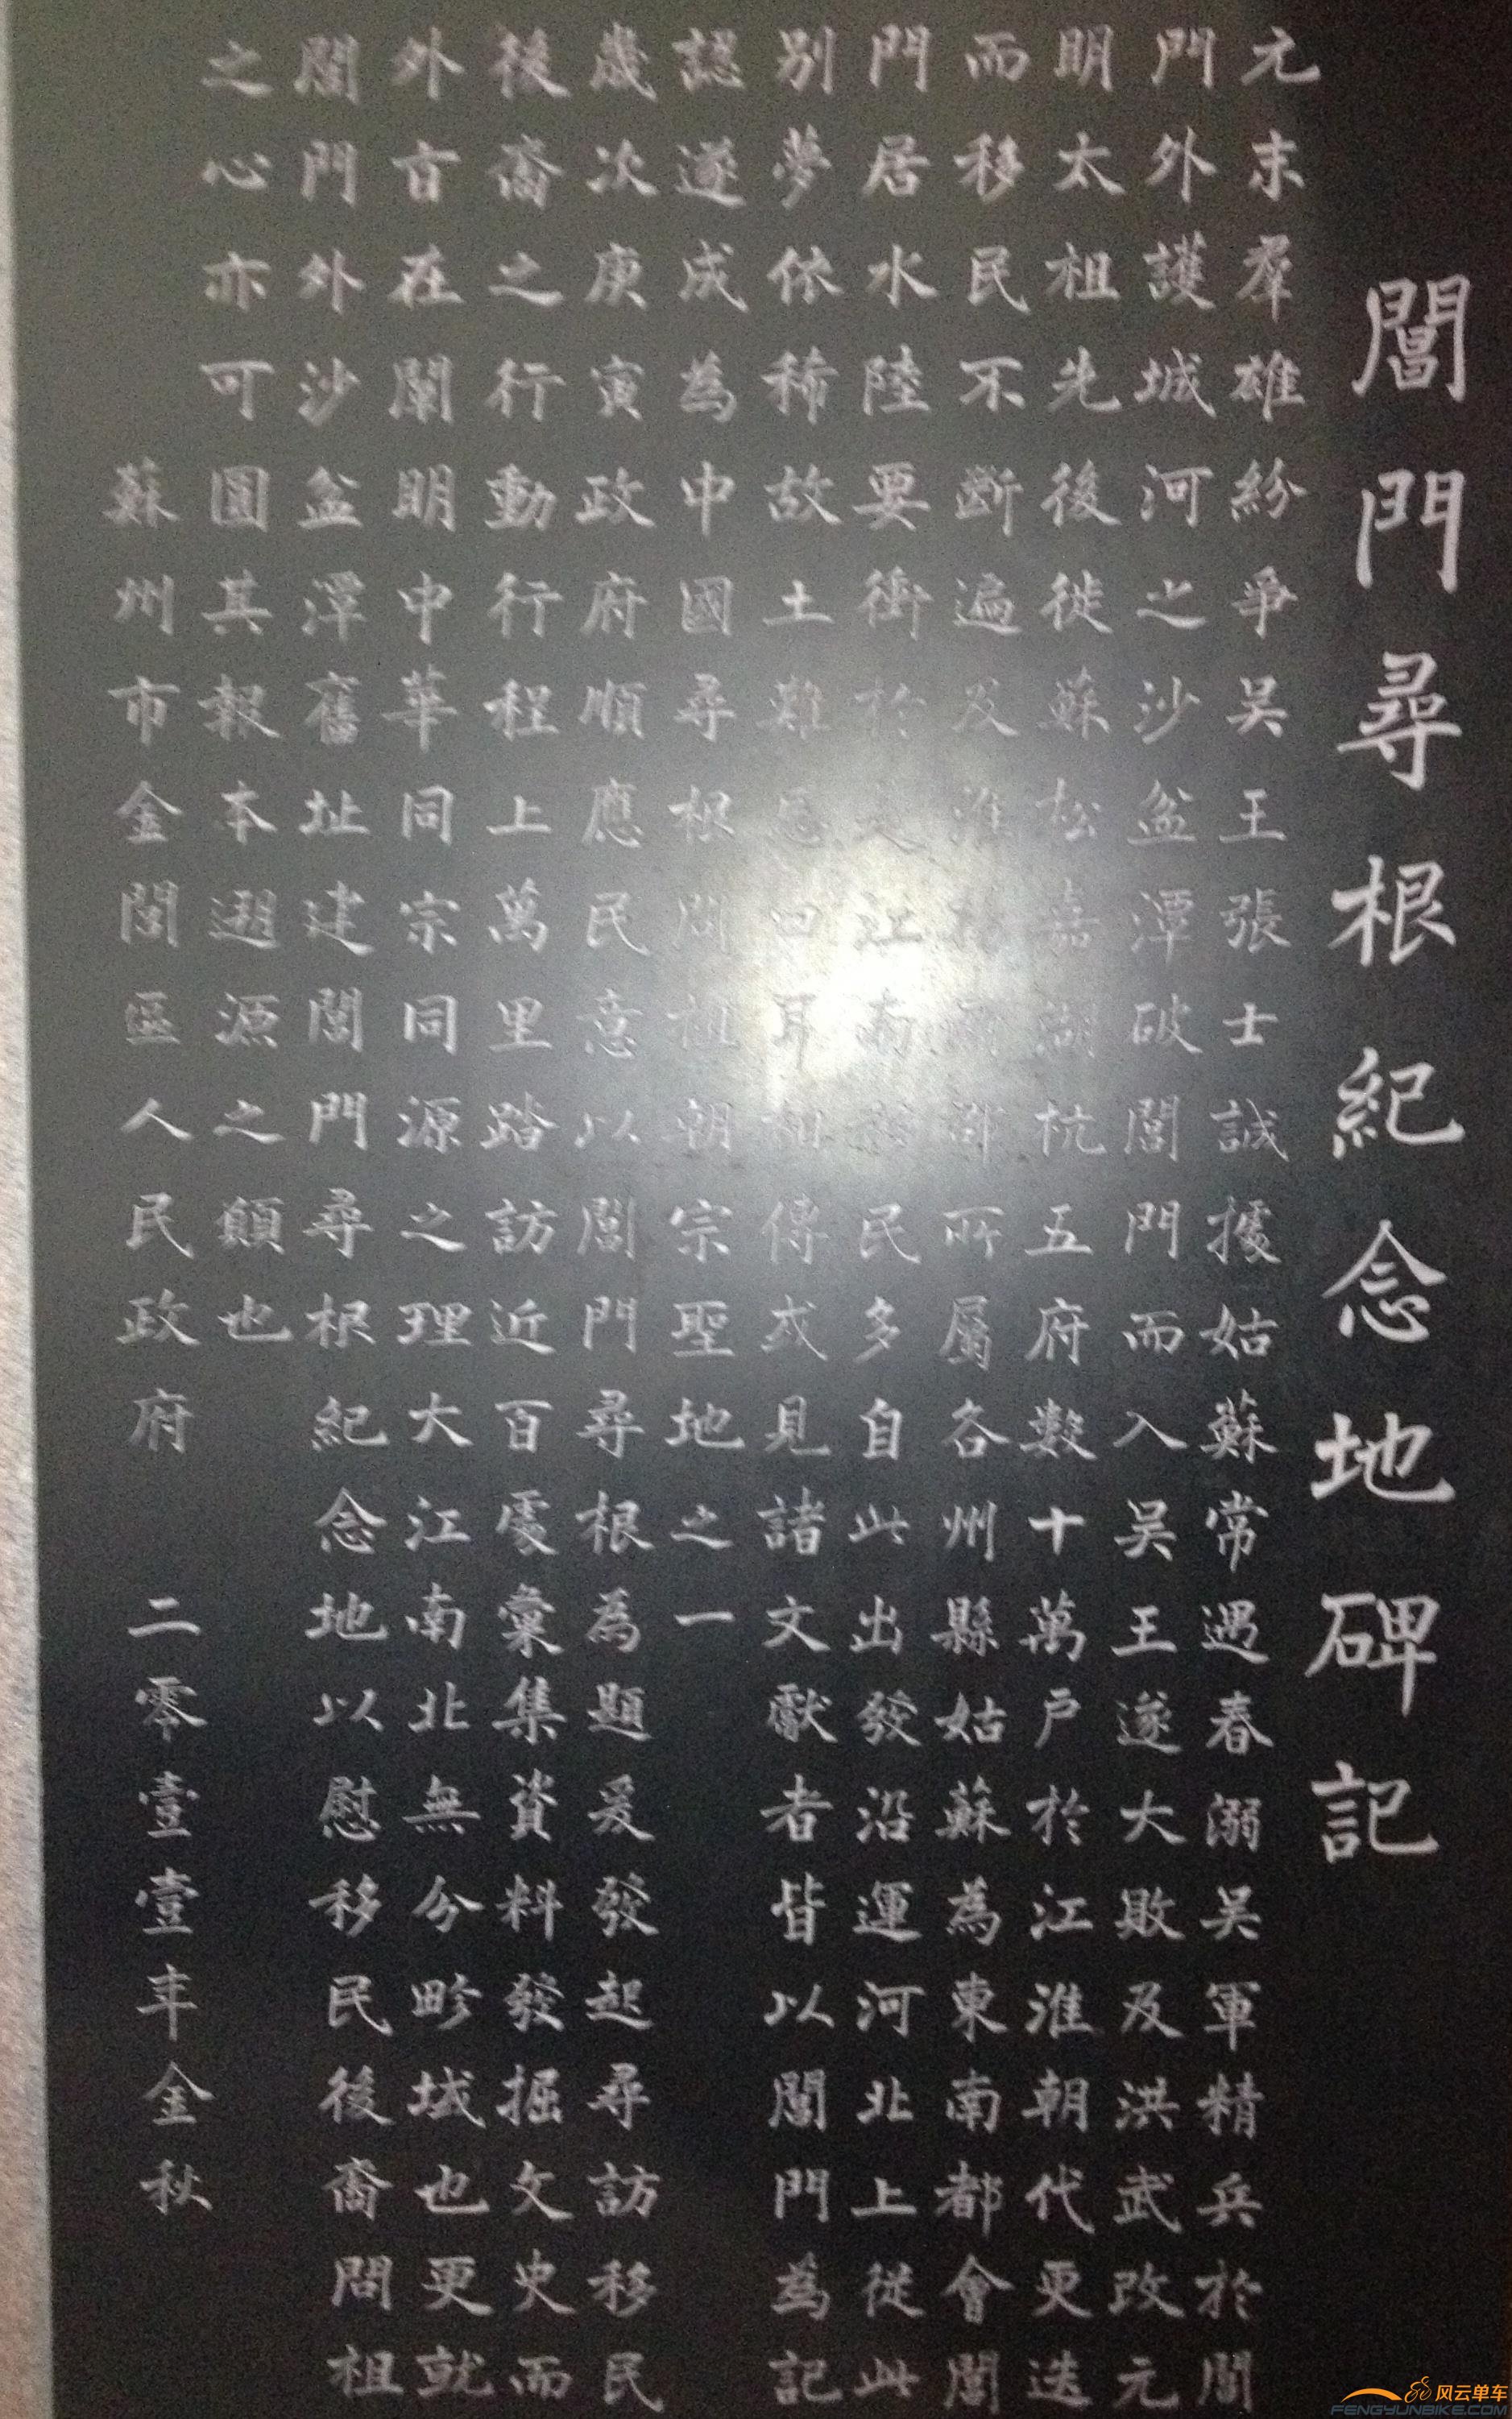 閶門尋根紀念地碑記
元末羣雄紛爭吴王張士誠據姑蘇常遇春溺吴軍精兵於閶
門外護城河之沙盆潭破閶門而入吴王遂大敗及洪武改元
明太祖先後徙蘇松嘉湖杭五府數十萬户於江淮朝代更迭
而移民不斷遍及淮所屬各州縣姑蘇為東南都會閶
門居水陸要衝於江南民多自此出發沿運河北上從此
别夢依稀故土難口耳相傳或見諸文獻者皆以閶門為記
認遂成為中國尋根問祖朝宗聖地之一
歲次庚寅政府順應民意以閶門尋根為題爰發起尋訪移民
後裔之行行動行程上萬里踏訪近百處彙集資料發掘文史而
外旨在闡明中華同宗同源之理大江南北無分畛域也更就
閶門外沙盆潭舊址建閶門尋根紀念地以慰移民後裔問祖
之心亦可圓其報本遡源之願也
蘇州市金閶區人民政府 二零壹壹年金秋
风云单车
FENGYUNBIKE.COM